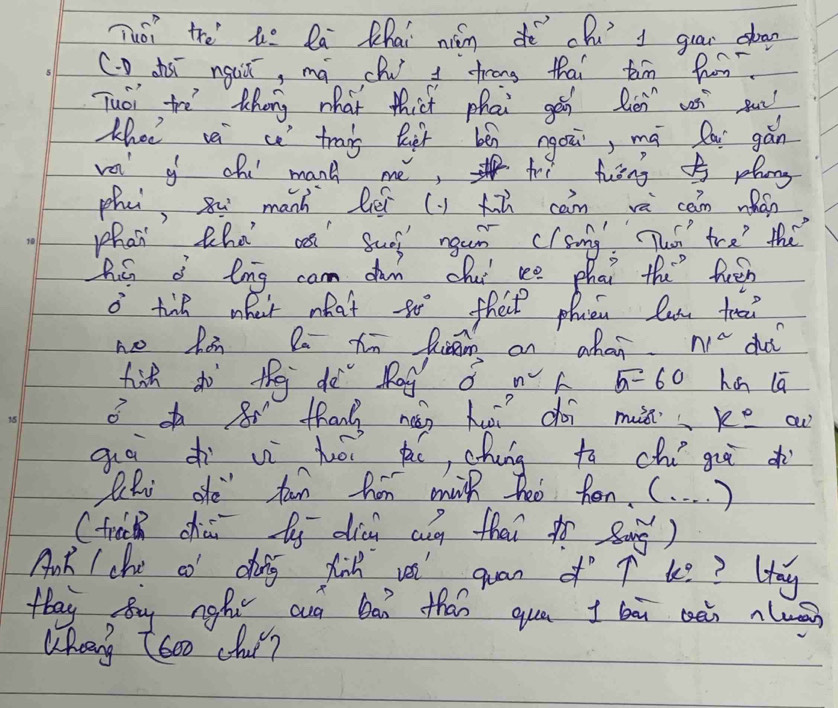 Tuổi trẻ ko là khái niệm để chỉ 1 giai đoạn
(-) đời người, mà chỉ 1 trạng thái tâm hồn.
Tuổi trẻ không nhất thiết phải gắn liền với sức
khoẻ và vẻ tráng kiệt bên ngoài, mà lại gắn
với ý chí mạnh mẽ, trí tưởng phong
phú, sự mãnh liệt (-) tình cảm và cảm nhận
phấn khởi với suối nguồn c/sống. Tuổi trẻ thể
hiện ở lòng can đảm chứ ko phải thể hiện
ở tính nhút nhát sở thích phiêu lưu trải
hơn là tìm kiếm an nhàn. đức
tính đó thg dễ thấy ở 5-60 hơn là
ở đa số thanh niên tuổi đôi mươi. Ko ai
già đi vì tuổi tác, chúng ta chỉ già đi
khi để tâm hồn mình héo hon. (....)
(trích điều kỳ diệu của thái độ sống)
Anh / chị có đồng tình với quan đ' ↑ ko? Hãy
suy nghĩ của bản thân qua 1 bài văn
khoảng 600 chữ?